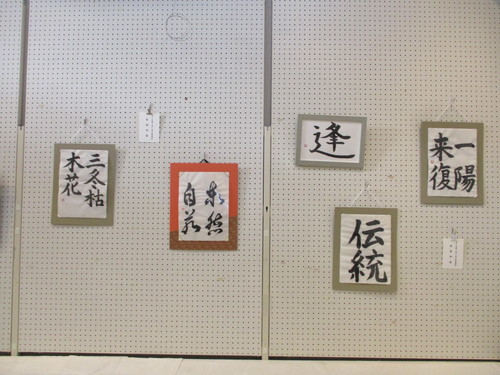 三冬枯
木花
泰然
自若
逢
伝統
一陽
来復